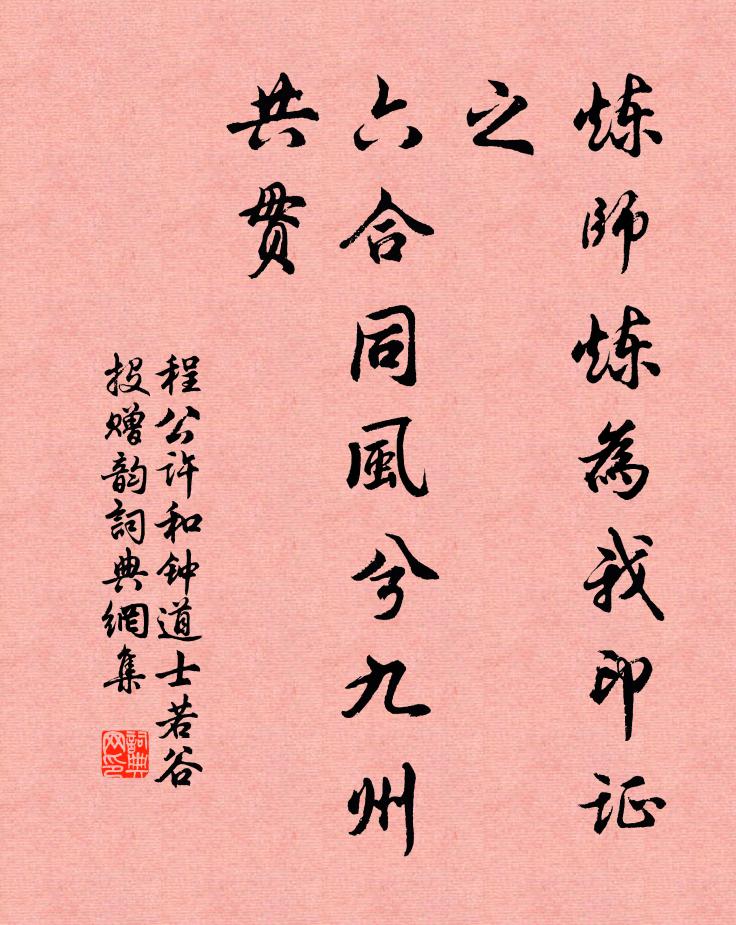 炼師炼為我印证
之
六合同風兮九州
共贯
程公许和钟道士若谷
投赠韵詞典網集
詞典网印